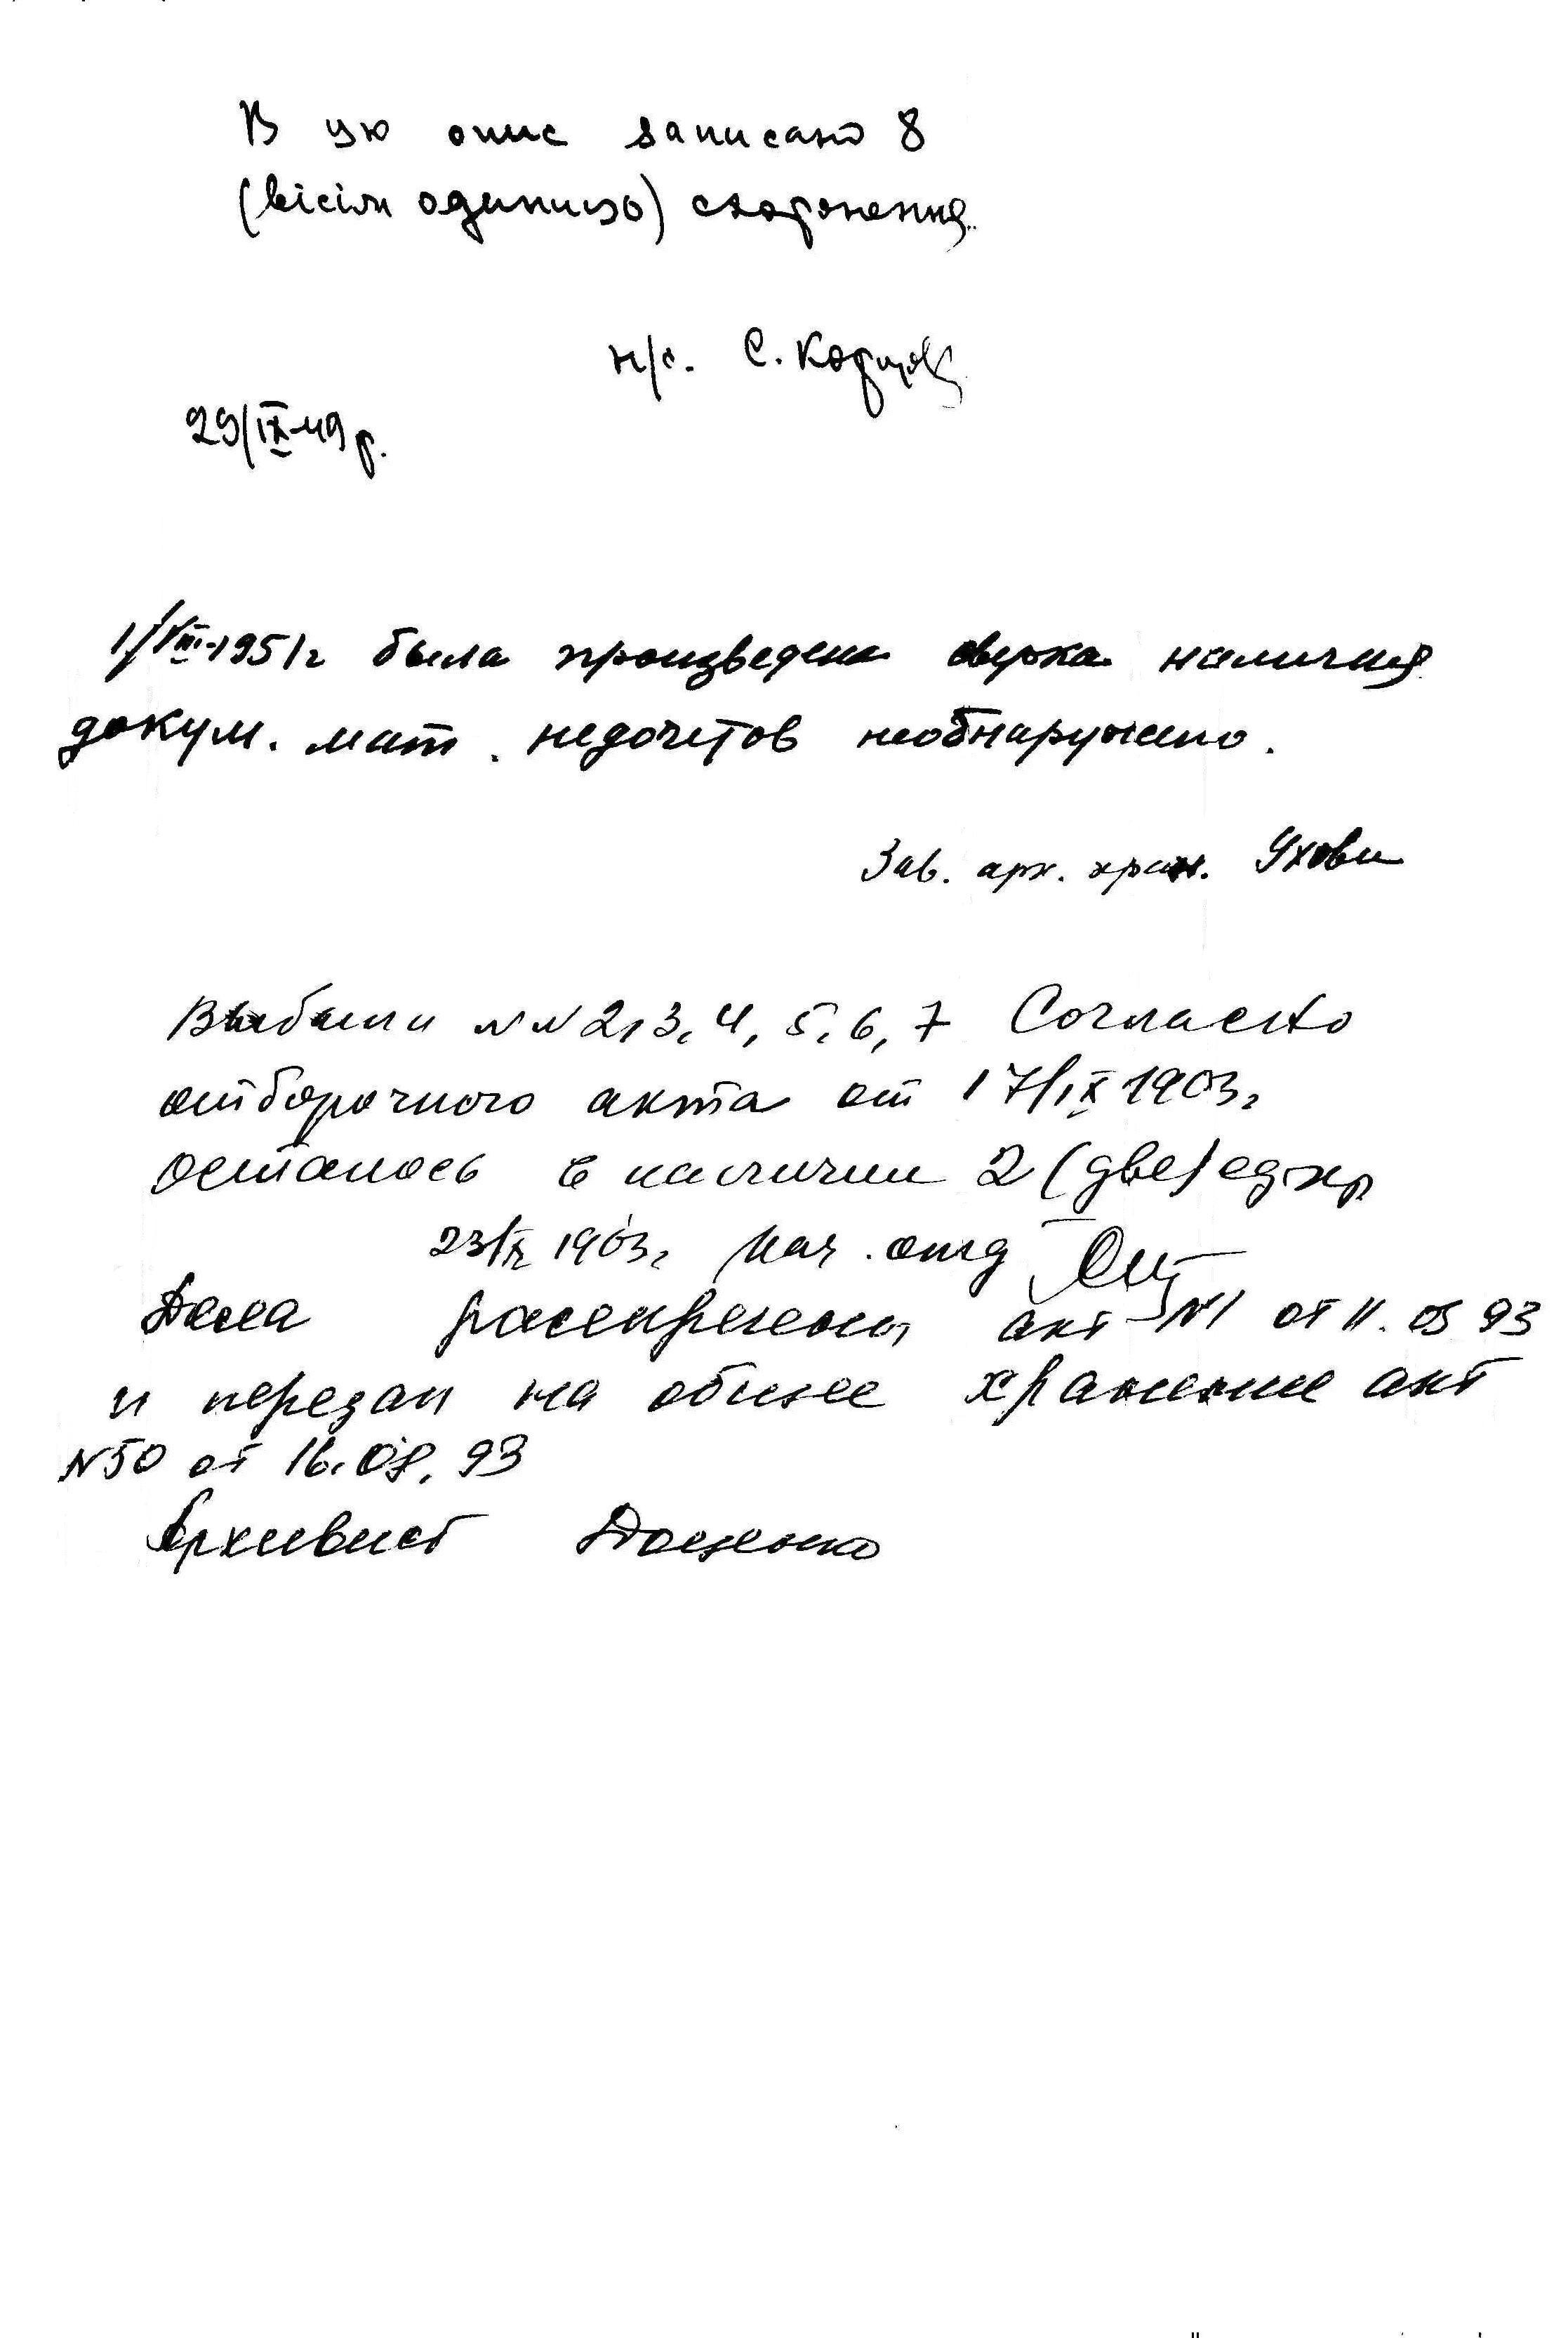 В цю опис записано 8
(вісім одиниць) схоронення.
н/с. С.
29/IX-49 р.
1/VIII-1951г была произведена сверка наличия
докум. мат. недочетов необнаружено.
Зав. арх. хран.
Выбыли NN 2, 3, 4, 5, 6, 7 Согласно
отборочного акта от 17/IX 1963г
осталось в наличии 2 (две) ед хр
23/IX 1963г. Нач. отд
Дела рассекречены акт №1 от 11. 05 93
и передан на общее хранение акт
N50 от 16.08.93
Архивист Доценко